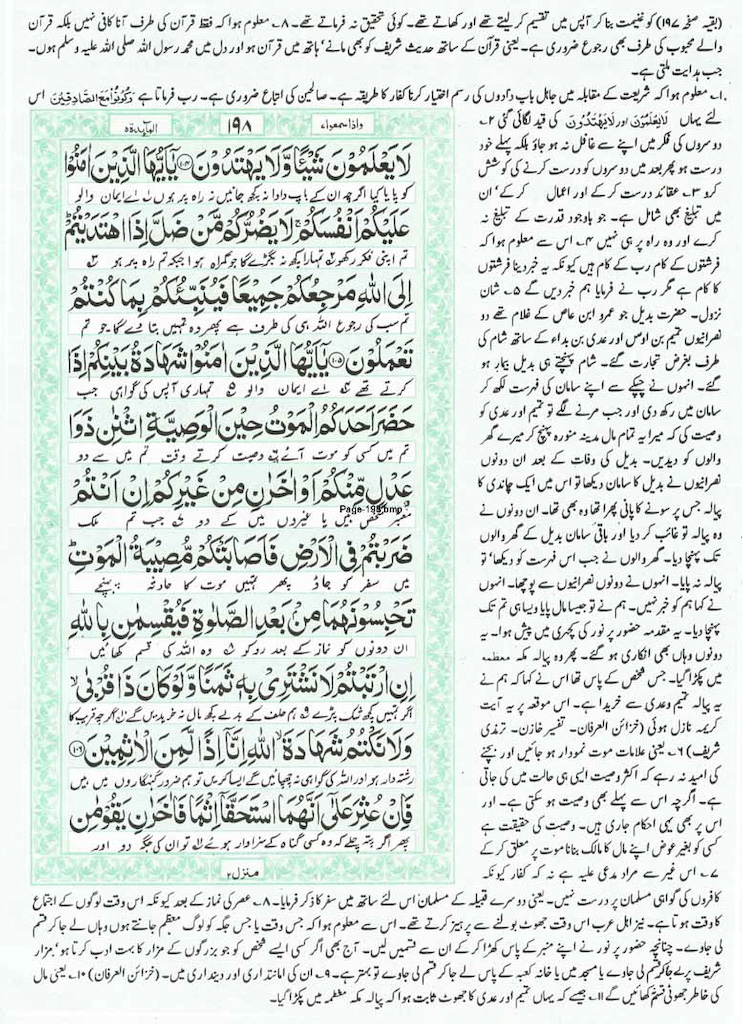 (بقیہ صفحہ ۱۹۷) کو غنیمت بنا کر آپس میں تقسیم کر لیتے تھے اور کھاتے تھے۔ کوئی تحقیق نہ فرماتے تھے۔ ۸۔ معلوم ہوا کہ فقط قرآن کی طرف آنا کافی نہیں بلکہ قرآن
والے محبوب کی طرف بھی رجوع ضروری ہے۔ یعنی قرآن کے ساتھ حدیث شریف کو بھی مانے' ہاتھ میں قرآن ہو اور دل میں محمد رسول اللہ صلی اللہ علیہ وسلم ہوں۔
جب ہدایت ملتی ہے۔
۱۔ معلوم ہوا کہ شریعت کے مقابلہ میں جاہل باپ دادوں کی رسم اختیار کرنا کفار کا طریقہ ہے۔ صالحین کی اتباع ضروری ہے۔ رب فرماتا ہے وَكُونُوا مَعَ الصَّادِقِينَ اس
لئے یہاں لَا يَعْلَمُونَ اور لَا يَهْتَدُونَ کی قید لگائی گئی ۲۔
دوسروں کی فکر میں اپنے سے غافل نہ ہو جاؤ بلکہ پہلے خود
درست ہو پھر بعد میں دوسروں کو درست کرنے کی کوشش
کرو ۳۔ عقائد درست کر کے اور اعمال کر کے' ان
میں تبلیغ بھی شامل ہے۔ جو باوجود قدرت کے تبلیغ نہ
کرے اور وہ راہ پر ہی نہیں ۴۔ اس سے معلوم ہوا کہ
فرشتوں کے کام رب کے کام ہیں کیونکہ یہ خبر دینا فرشتوں
کا کام ہے مگر رب نے فرمایا ہم خبر دیں گے ۵۔ شان
نزول۔ حضرت بدیل جو عمرو ابن عاص کے غلام تھے دو
نصرانیوں تمیم بن اوس اور عدی بن بداء کے ساتھ شام کی
طرف بغرض تجارت گئے۔ شام پہنچتے ہی بدیل بیمار ہو
گئے۔ انہوں نے چپکے سے اپنے سامان کی فہرست لکھ کر
سامان میں رکھ دی اور جب مرنے لگے تو تمیم اور عدی کو
وصیت کی کہ میرا یہ تمام مال مدینہ منورہ پہنچ کر میرے گھر
والوں کو دیدیں۔ بدیل کی وفات کے بعد ان دونوں
نصرانیوں نے بدیل کا سامان دیکھا تو اس میں ایک چاندی کا
پیالہ جس پر سونے کا پانی پھرا تھا وہ بھی تھا۔ ان دونوں نے
وہ پیالہ تو غائب کر دیا اور باقی سامان بدیل کے گھر والوں
تک پہنچا دیا۔ گھر والوں نے جب اس فہرست کو دیکھا' تو
پیالہ نہ پایا۔ انہوں نے دونوں نصرانیوں سے پوچھا۔ انہوں
نے کہا ہم کو خبر نہیں۔ ہم نے تو جیسا مال پایا ویسا ہی تم تک
پہنچا دیا۔ یہ مقدمہ حضور پر نور کی کچہری میں پیش ہوا۔ یہ
دونوں وہاں بھی انکاری ہو گئے۔ پھر وہ پیالہ مکہ معظمہ
میں پکڑا گیا۔ جس شخص کے پاس تھا اس نے کہا کہ ہم نے
یہ پیالہ تمیم وعدی سے خریدا ہے۔ اس موقعہ پر یہ آیت
کریمہ نازل ہوئی (خزائن العرفان۔ تفسیر خازن۔ ترمذی
شریف) ۶۔ یعنی علامات موت نمودار ہو جائیں اور بچنے
کی امید نہ رہے کہ اکثر وصیت ایسی ہی حالت میں کی جاتی
ہے۔ اگرچہ اس سے پہلے بھی وصیت ہو سکتی ہے۔ اور
اس پر بھی یہی احکام جاری ہیں۔ وصیت کی حقیقت ہے
کسی کو بغیر عوض اپنے مال کا مالک بنانا موت پر معلق کر کے
۷۔ اس غیر سے مراد مدعی علیہ ہے نہ کہ کفار کیونکہ
المائدة ۵
۱۹۸
واذا سمعوا ۷
لَا يَعْلَمُوْنَ شَيْـًٔا وَّلَا يَهْتَدُوْنَ ۱۰۴ يٰٓاَيُّهَا الَّذِيْنَ اٰمَنُوْا
کو پایا کیا اگرچہ ان کے باپ دادا نہ کچھ جانیں نہ راہ پر ہوں اے ایمان والو
عَلَيْكُمْ اَنْفُسَكُمْ لَا يَضُرُّكُمْ مَّنْ ضَلَّ اِذَا اهْتَدَيْتُمْ
تم اپنی فکر رکھو تمہارا کچھ نہ بگاڑے گا جو گمراہ ہوا جبکہ تم راہ پر ہو
اِلَى اللّٰهِ مَرْجِعُكُمْ جَمِيْعًا فَيُنَبِّئُكُمْ بِمَا كُنْتُمْ
تم سب کی رجوع اللہ ہی کی طرف ہے پھر وہ تمہیں بتا دے گا جو تم
تَعْمَلُوْنَ ۱۰۵ يٰٓاَيُّهَا الَّذِيْنَ اٰمَنُوْا شَهَادَةُ بَيْنِكُمْ اِذَا
کرتے تھے اے ایمان والو تمہاری آپس کی گواہی جب
حَضَرَ اَحَدَكُمُ الْمَوْتُ حِيْنَ الْوَصِيَّةِ اثْنٰنِ ذَوَا
تم میں کسی کو موت آئے وصیت کرتے وقت تم میں سے دو
عَدْلٍ مِّنْكُمْ اَوْ اٰخَرٰنِ مِنْ غَيْرِكُمْ اِنْ اَنْتُمْ
معتبر شخص ہیں یا غیروں میں کے دو جب تم ملک
Page-198.bmp
ضَرَبْتُمْ فِى الْاَرْضِ فَاَصَابَتْكُمْ مُّصِيْبَةُ الْمَوْتِ
میں سفر کو جاؤ پھر تمہیں موت کا حادثہ پہنچے
تَحْبِسُوْنَهُمَا مِنْ بَعْدِ الصَّلٰوةِ فَيُقْسِمٰنِ بِاللّٰهِ
ان دونوں کو نماز کے بعد روکو وہ اللہ کی قسم کھائیں
اِنِ ارْتَبْتُمْ لَا نَشْتَرِىْ بِهٖ ثَمَنًا وَّلَوْ كَانَ ذَا قُرْبٰى
اگر تمہیں کچھ شک پڑے ہم حلف کے بدلے کچھ مال نہ خریدیں گے اگرچہ قریب کا
وَلَا نَكْتُمُ شَهَادَةَ اللّٰهِ اِنَّآ اِذًا لَّمِنَ الْاٰثِمِيْنَ ۱۰۶
رشتہ دار ہو اور اللہ کی گواہی نہ چھپائیں گے ایسا کریں تو ہم ضرور گنہگاروں میں ہیں
فَاِنْ عُثِرَ عَلٰٓى اَنَّهُمَا اسْتَحَقَّآ اِثْمًا فَاٰخَرٰنِ يَقُوْمٰنِ
پھر اگر پتہ چلے کہ وہ کسی گناہ کے سزاوار ہوئے تو ان کی جگہ دو اور
منزل ۲
کافروں کی گواہی مسلمان پر درست نہیں۔ یعنی دوسرے قبیلہ کے مسلمان اس لئے ساتھ میں سفر کا ذکر فرمایا۔ ۸۔ عصر کی نماز کے بعد کیونکہ اس وقت لوگوں کے اجتماع
کا وقت ہوتا ہے۔ نیز اہل عرب اس وقت جھوٹ بولنے سے پرہیز کرتے تھے۔ اس سے معلوم ہوا کہ جس وقت یا جس جگہ کو لوگ معظم جانتے ہوں وہاں لے جا کر قسم
لی جاوے۔ چنانچہ حضور پر نور نے اپنے منبر کے پاس کھڑا کر کے ان سے قسمیں لیں۔ آج بھی اگر کسی ایسے شخص کو جو بزرگوں کے مزار کا بہت ادب کرتا ہو' مزار
شریف پر لے جا کر قسم لی جاوے یا مسجد میں یا خانہ کعبہ کے پاس لے جا کر قسم لی جاوے تو بہتر ہے۔ ۹۔ ان کی امانتداری اور دینداری میں۔ (خزائن العرفان) ۱۰۔ یعنی مال
کی خاطر جھوٹی قسم کھائیں گے ۱۱۔ جیسے کہ یہاں تمیم اور عدی کا جھوٹ ثابت ہوا کہ پیالہ مکہ معظمہ میں پکڑا گیا۔